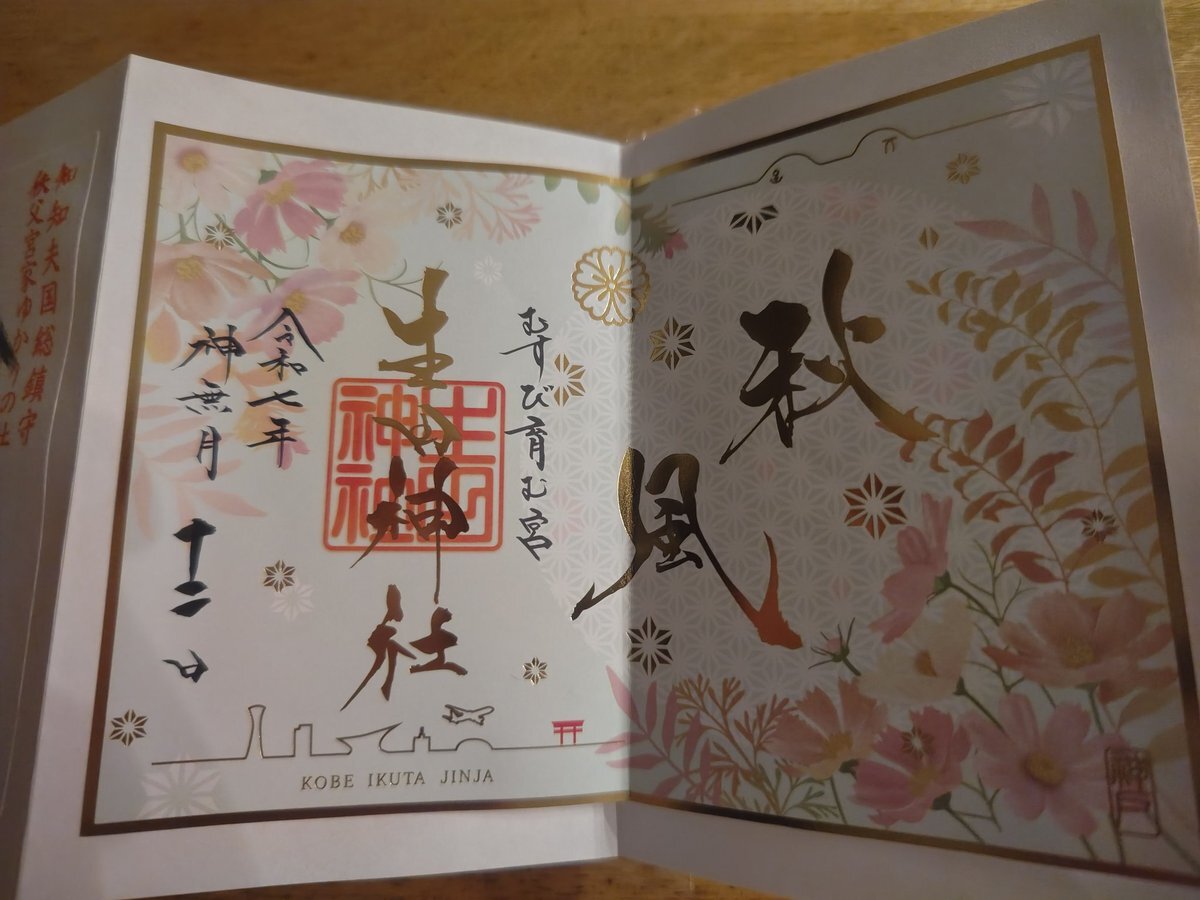 秋風
神戸
むすび育む宮
生田神社
生田神社
令和七年
神無月 十二日
KOBE IKUTA JINJA
知知夫国総鎮守
秩父宮家ゆかりの社